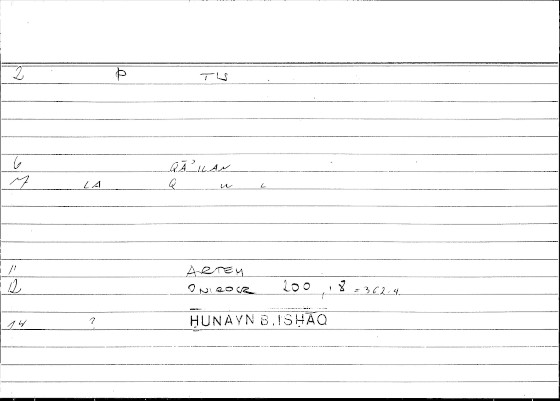 2 Þ TW
6 QĀʾILAN
7 LA Q W L
11 ARTEM
12 ONIROCR 200 , 18 = 362.4
14 ? ḤUNAYN B. ISḤĀQ